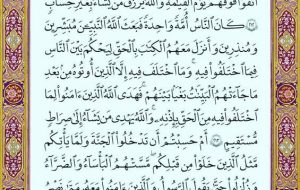 اتَّقَوْا فَوْقَهُمْ يَوْمَ الْقِيَٰمَةِ وَاللَّهُ يَرْزُقُ مَن يَشَاءُ بِغَيْرِ حِسَابٍ
﴿٢١٢﴾ كَانَ النَّاسُ أُمَّةً وَٰحِدَةً فَبَعَثَ اللَّهُ النَّبِيِّـۧنَ مُبَشِّرِينَ
وَمُنذِرِينَ وَأَنزَلَ مَعَهُمُ الْكِتَٰبَ بِالْحَقِّ لِيَحْكُمَ بَيْنَ النَّاسِ
فِيمَا اخْتَلَفُوا فِيهِ ۚ وَمَا اخْتَلَفَ فِيهِ إِلَّا الَّذِينَ أُوتُوهُ مِن بَعْدِ
مَا جَاءَتْهُمُ الْبَيِّنَٰتُ بَغْيًا بَيْنَهُمْ ۖ فَهَدَى اللَّهُ الَّذِينَ ءَامَنُوا لِمَا
اخْتَلَفُوا فِيهِ مِنَ الْحَقِّ بِإِذْنِهِ ۗ وَاللَّهُ يَهْدِي مَن يَشَاءُ إِلَىٰ صِرَاطٍ
مُّسْتَقِيمٍ ﴿٢١٣﴾ أَمْ حَسِبْتُمْ أَن تَدْخُلُوا الْجَنَّةَ وَلَمَّا يَأْتِكُم
مَّثَلُ الَّذِينَ خَلَوْا مِن قَبْلِكُم ۖ مَّسَّتْهُمُ الْبَأْسَاءُ وَالضَّرَّاءُ
وَزُلْزِلُوا حَتَّىٰ يَقُولَ الرَّسُولُ وَالَّذِينَ ءَامَنُوا مَعَهُ مَتَىٰ نَصْرُ